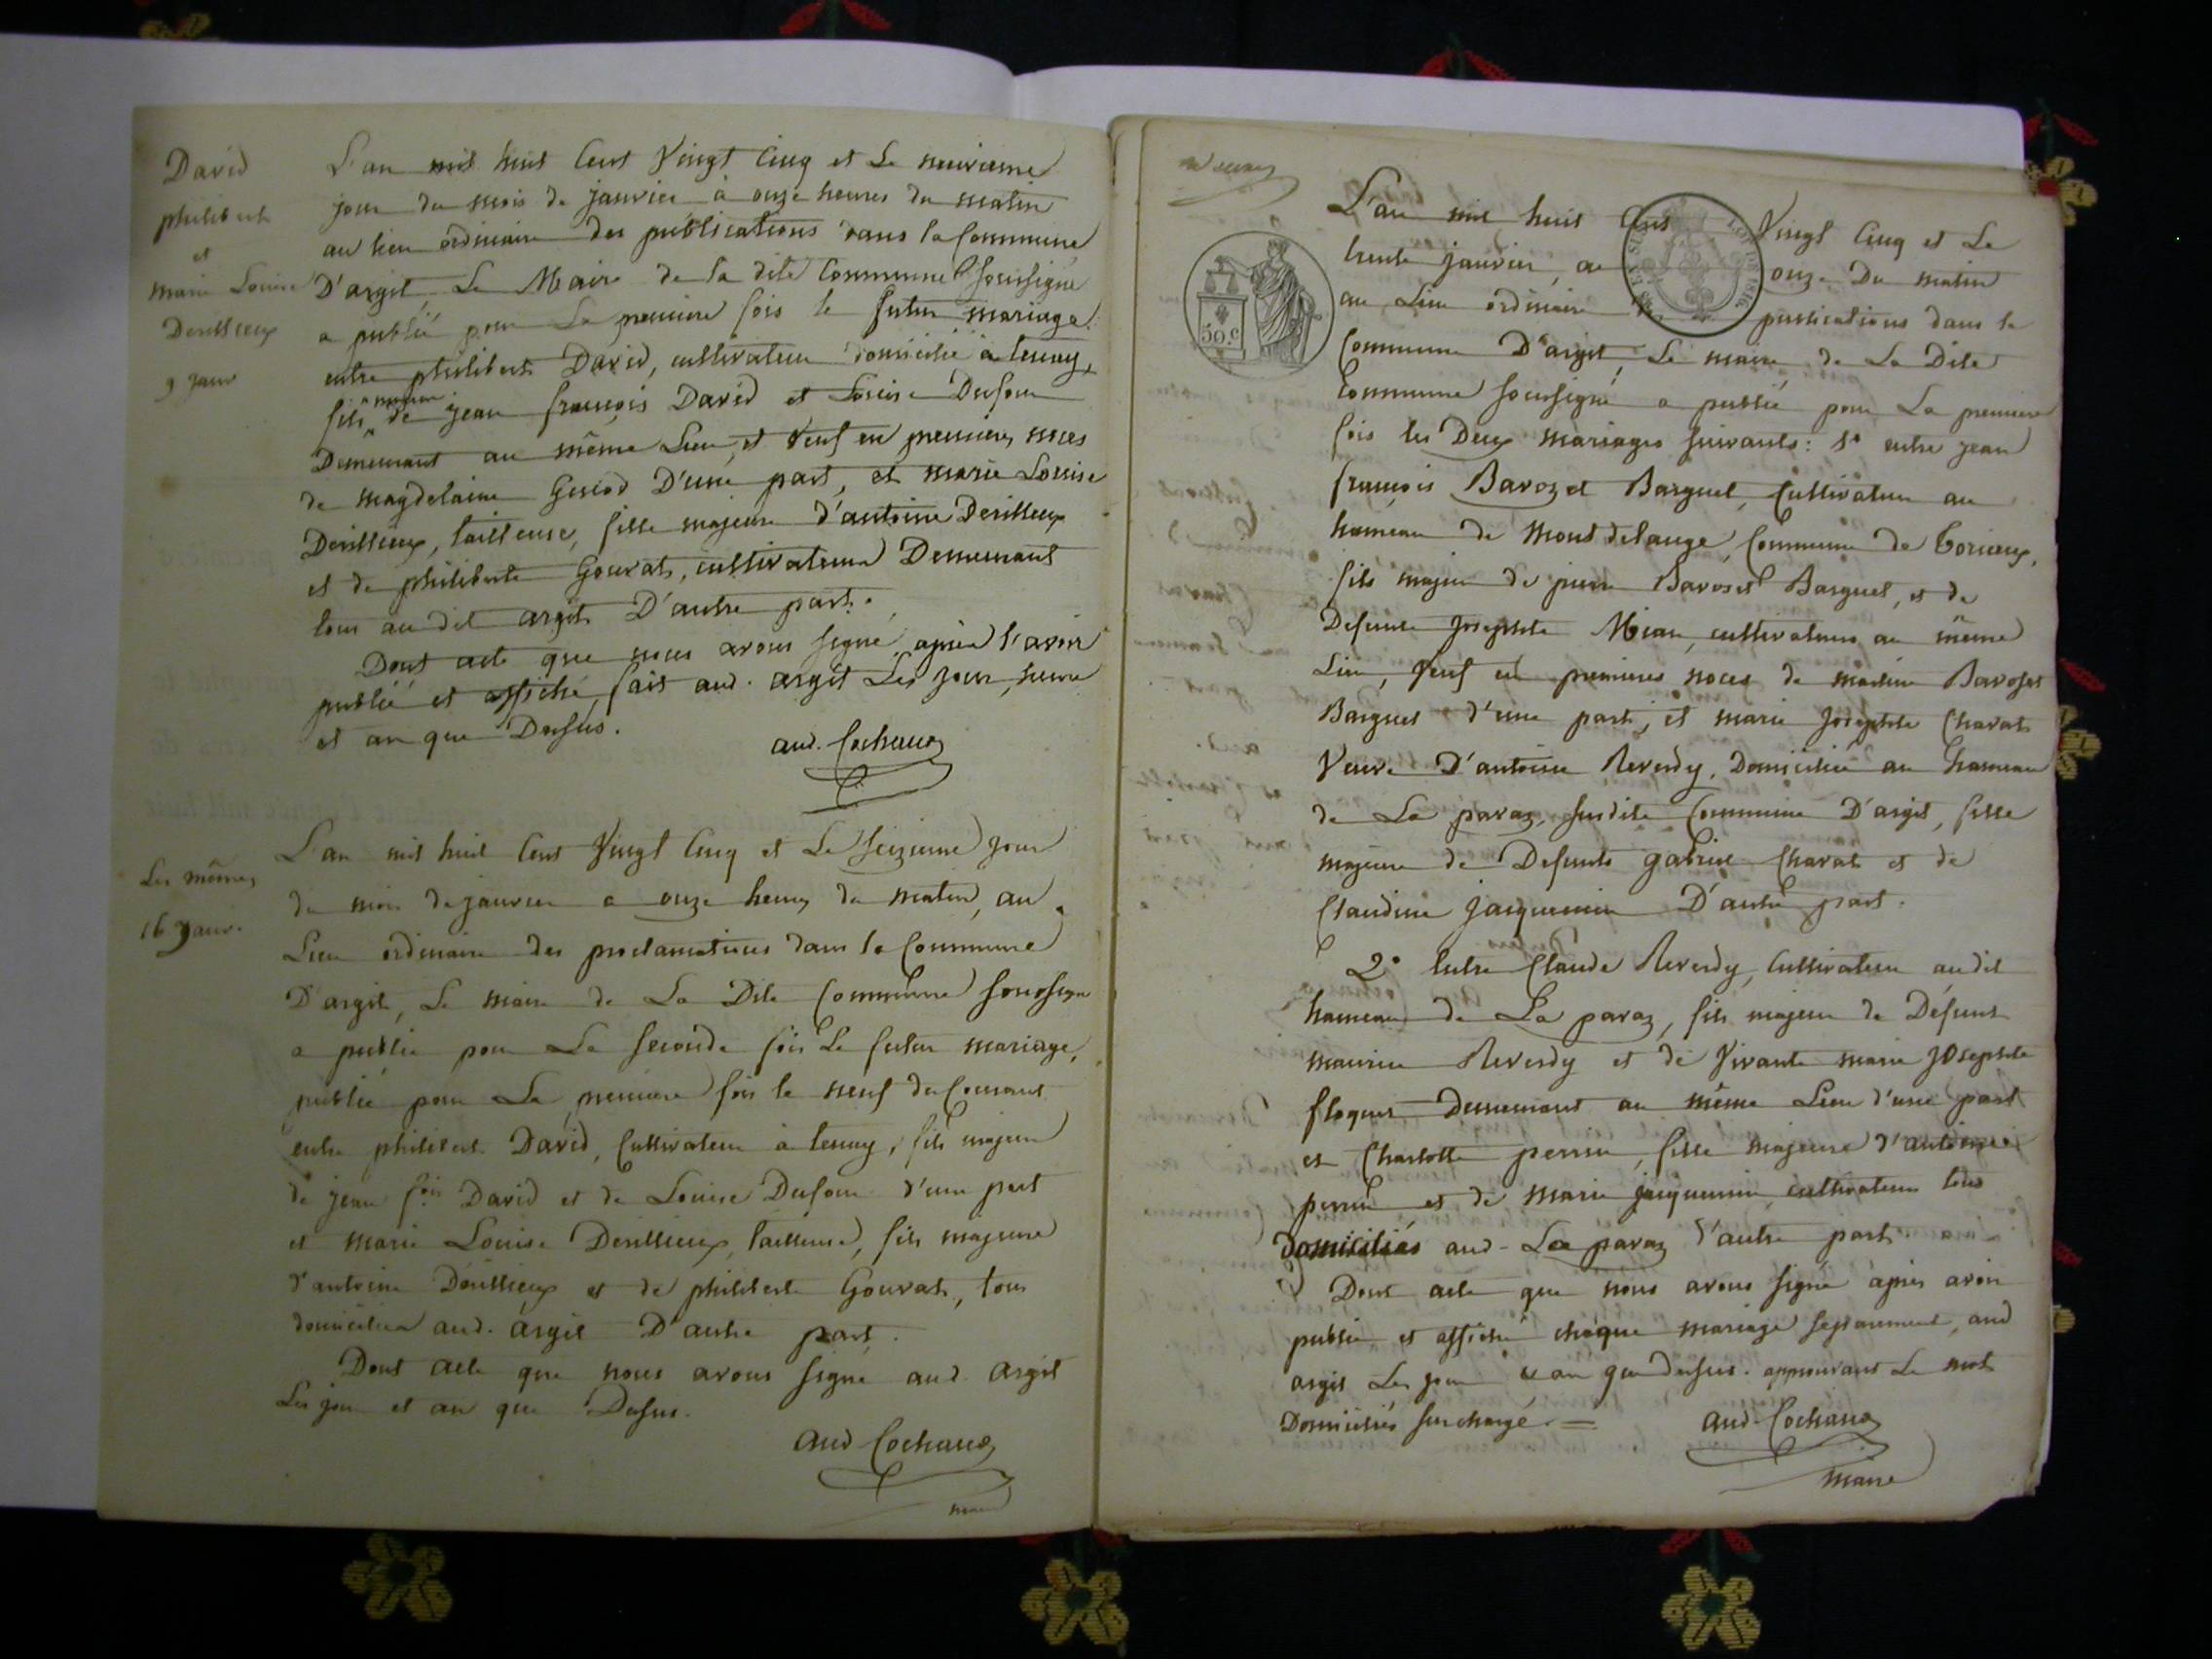 David
philiberte
et
marie Louise
Derillieux
9 janv
L'an mil huit Cent Vingt Cinq et Le neuvieme
jour du mois de janvier à onze heures du matin
au lieu ordinaire des publications dans la Commune
D'argit, Le Maire de la dite Commune soussigné
a publié pour La premiere fois le futur mariage
entre philibert David, cultivateur domicilié à tenay,
fils majeur de jean françois David et Louise Dufour
Demeurant au même Lieu, et Veuf en premieres noces
de magdelaine D'une part, et marie Louise
Derillieux, tailleuse, fille majeure d'antoine Derillieux
et de philiberte Gouvat, cultivateurs Demeurant
tous au dit argit D'autre part.
Dont acte que nous avons signé après l'avoir
publié et affiché, fait aud. argit Les jour, heure
et an que Dessus.
aud. Cochaud
Les mêmes
16 Janv.
L'an mil huit Cent Vingt Cinq et Le Seizieme jour
du mois de janvier a onze heures du matin, au
Lieu ordinaire des proclamations dans la Commune
D'argit, Le maire de La Dite Commune soussigné
a publié pour La Seconde fois Le futur mariage,
publié pour La premiere fois le neuf du Courant
entre philibert David, Cultivateur à tenay, fils majeur
de jean fois David et de Louise Dufour d'une part
et marie Louise Derillieux, tailleuse, fils majeure
d'antoine Derillieux et de philiberte Gouvat, tous
domiciliés aud. argit D'autre part.
Dont acte que nous avons signé aud. argit
Les jour et an que Dessus.
aud Cochaud
maire
50.C
L'an mil huit Cent Vingt Cinq et Le
trente janvier, a onze Du matin
au Lieu ordinaire publications dans la
Commune D'argit, Le maire de La Dite
Commune soussigné a publié pour La premiere
fois les Deux mariages suivants: 1° entre jean
françois Barozet Barquet, Cultivateur au
hameau de Mont delange, Commune de torcieux,
fils majeur de pierre Barozet Barquet, et de
Defunte Josephte Mian, cultivateurs au même
Lieu, Veuf en premieres noces de Barozet
Barquet d'une part, et marie Josephte Charat
Veuve D'antoine Reverdy, Domiciliée au hameau
de La paraz, susdite Commune D'argit, fille
majeure de Defunts gabriel Charat et de
Claudine jacquemin D'autre part.
2° Entre Claude Reverdy, Cultivateur audit
hameau de La paraz, fils majeur de Défunt
maurice Reverdy et de Vivante marie Josephte
floquet Demeurant au même Lieu d'une part
et Charlotte perrin, fille majeure d'antoine
perrin et de marie jacquemin cultivateurs tous
domiciliés aud. La paraz d'autre part.
Dont acte que nous avons signé après avoir
publié et affiché chaque mariage separement, aud
argit Les jour & an que dessus. approuvant Le mot
Domiciliés surchargé. =
aud Cochaud
maire